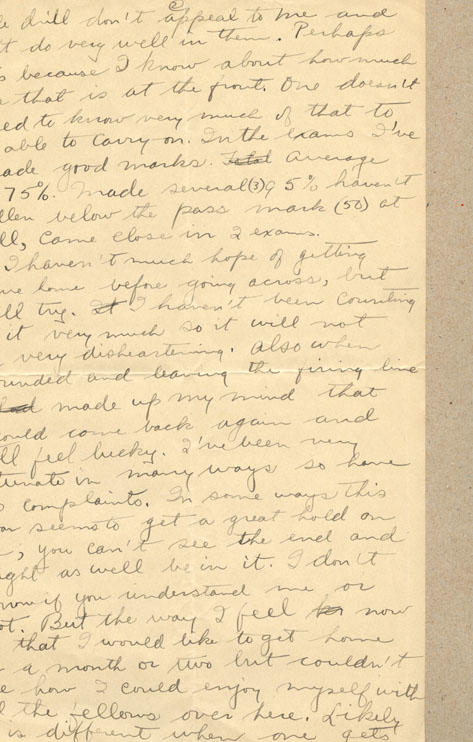 drill don't appeal to me and
't do very well in them. Perhaps
because I know about how much
that is at the front. One doesn't
ed to know very much of that to
able to carry on. In the exams I've
ade good marks. average
75%. Made several (3) 95% haven't
llen below the pass mark (50) at
ll, came close in 2 exams.
I haven't much hope of getting
ve home before going across, but
ll try. I haven't been counting
it very much so it will not
very disheartening. Also when
ounded and leaving the firing line
had made up my mind that
ould come back again and
ll feel lucky. I've been very
tunate in many ways so have
complaints. In some ways this
ar seems to get a great hold on
, you can't see the end and
ight as well be in it. I don't
now if you understand me or
ot. But the way I feel now
that I would like to get home
a month or two but couldn't
e how I could enjoy myself with
l the fellows over here. Likely
is different when one gets